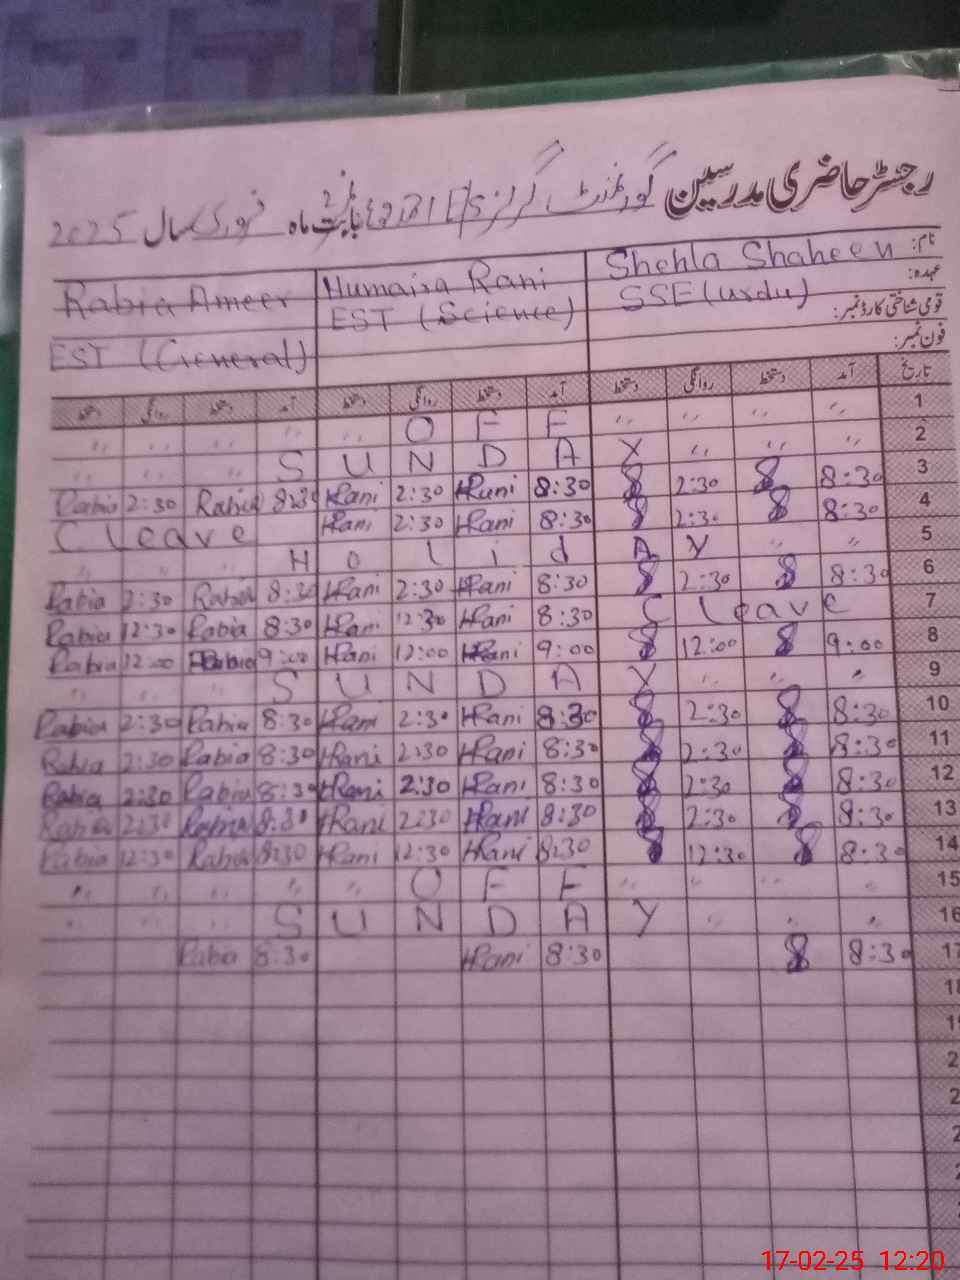 رجسٹر حاضری مدرسین گورنمنٹ گرلز بابت ماہ فروری سال 2025
نام: Shehla Shaheen Humaira Rani Rabia Ameer
عہدہ: SSE (urdu) EST (Science) EST (General)
قومی شناختی کارڈ نمبر:
فون نمبر:
تاریخ آمد دستخط روانگی دستخط آمد دستخط روانگی دستخط آمد دستخط روانگی دستخط
" " " " " O F F " " " " 1
" " " S U N D A Y " " " 2
Rabia 2:30 Rabia 8:30 HRani 2:30 HRani 8:30 2:30 8:30 3
C leave HRani 2:30 HRani 8:30 2:30 8:30 4
" " " H o l i d A Y " " 5
Rabia 2:30 Rabia 8:30 HRani 2:30 HRani 8:30 2:30 8:30 6
Rabia 12:30 Rabia 8:30 HRani 12:30 HRani 8:30 C leave 7
Rabia 12:00 Rabia 9:00 HRani 12:00 HRani 9:00 12:00 9:00 8
" " " S U N D A Y " " " 9
Rabia 2:30 Rabia 8:30 HRani 2:30 HRani 8:30 2:30 8:30 10
Rabia 2:30 Rabia 8:30 HRani 2:30 HRani 8:30 2:30 8:30 11
Rabia 2:30 Rabia 8:30 HRani 2:30 HRani 8:30 2:30 8:30 12
Rabia 2:30 Rabia 8:30 HRani 2:30 HRani 8:30 2:30 8:30 13
Rabia 12:30 Rabia 8:30 HRani 12:30 HRani 8:30 12:30 8:30 14
" " " " " O F F " " " " 15
" " " S U N D A Y " " " 16
Rabia 8:30 HRani 8:30 8:30 17
18
19
17-02-25 12:20